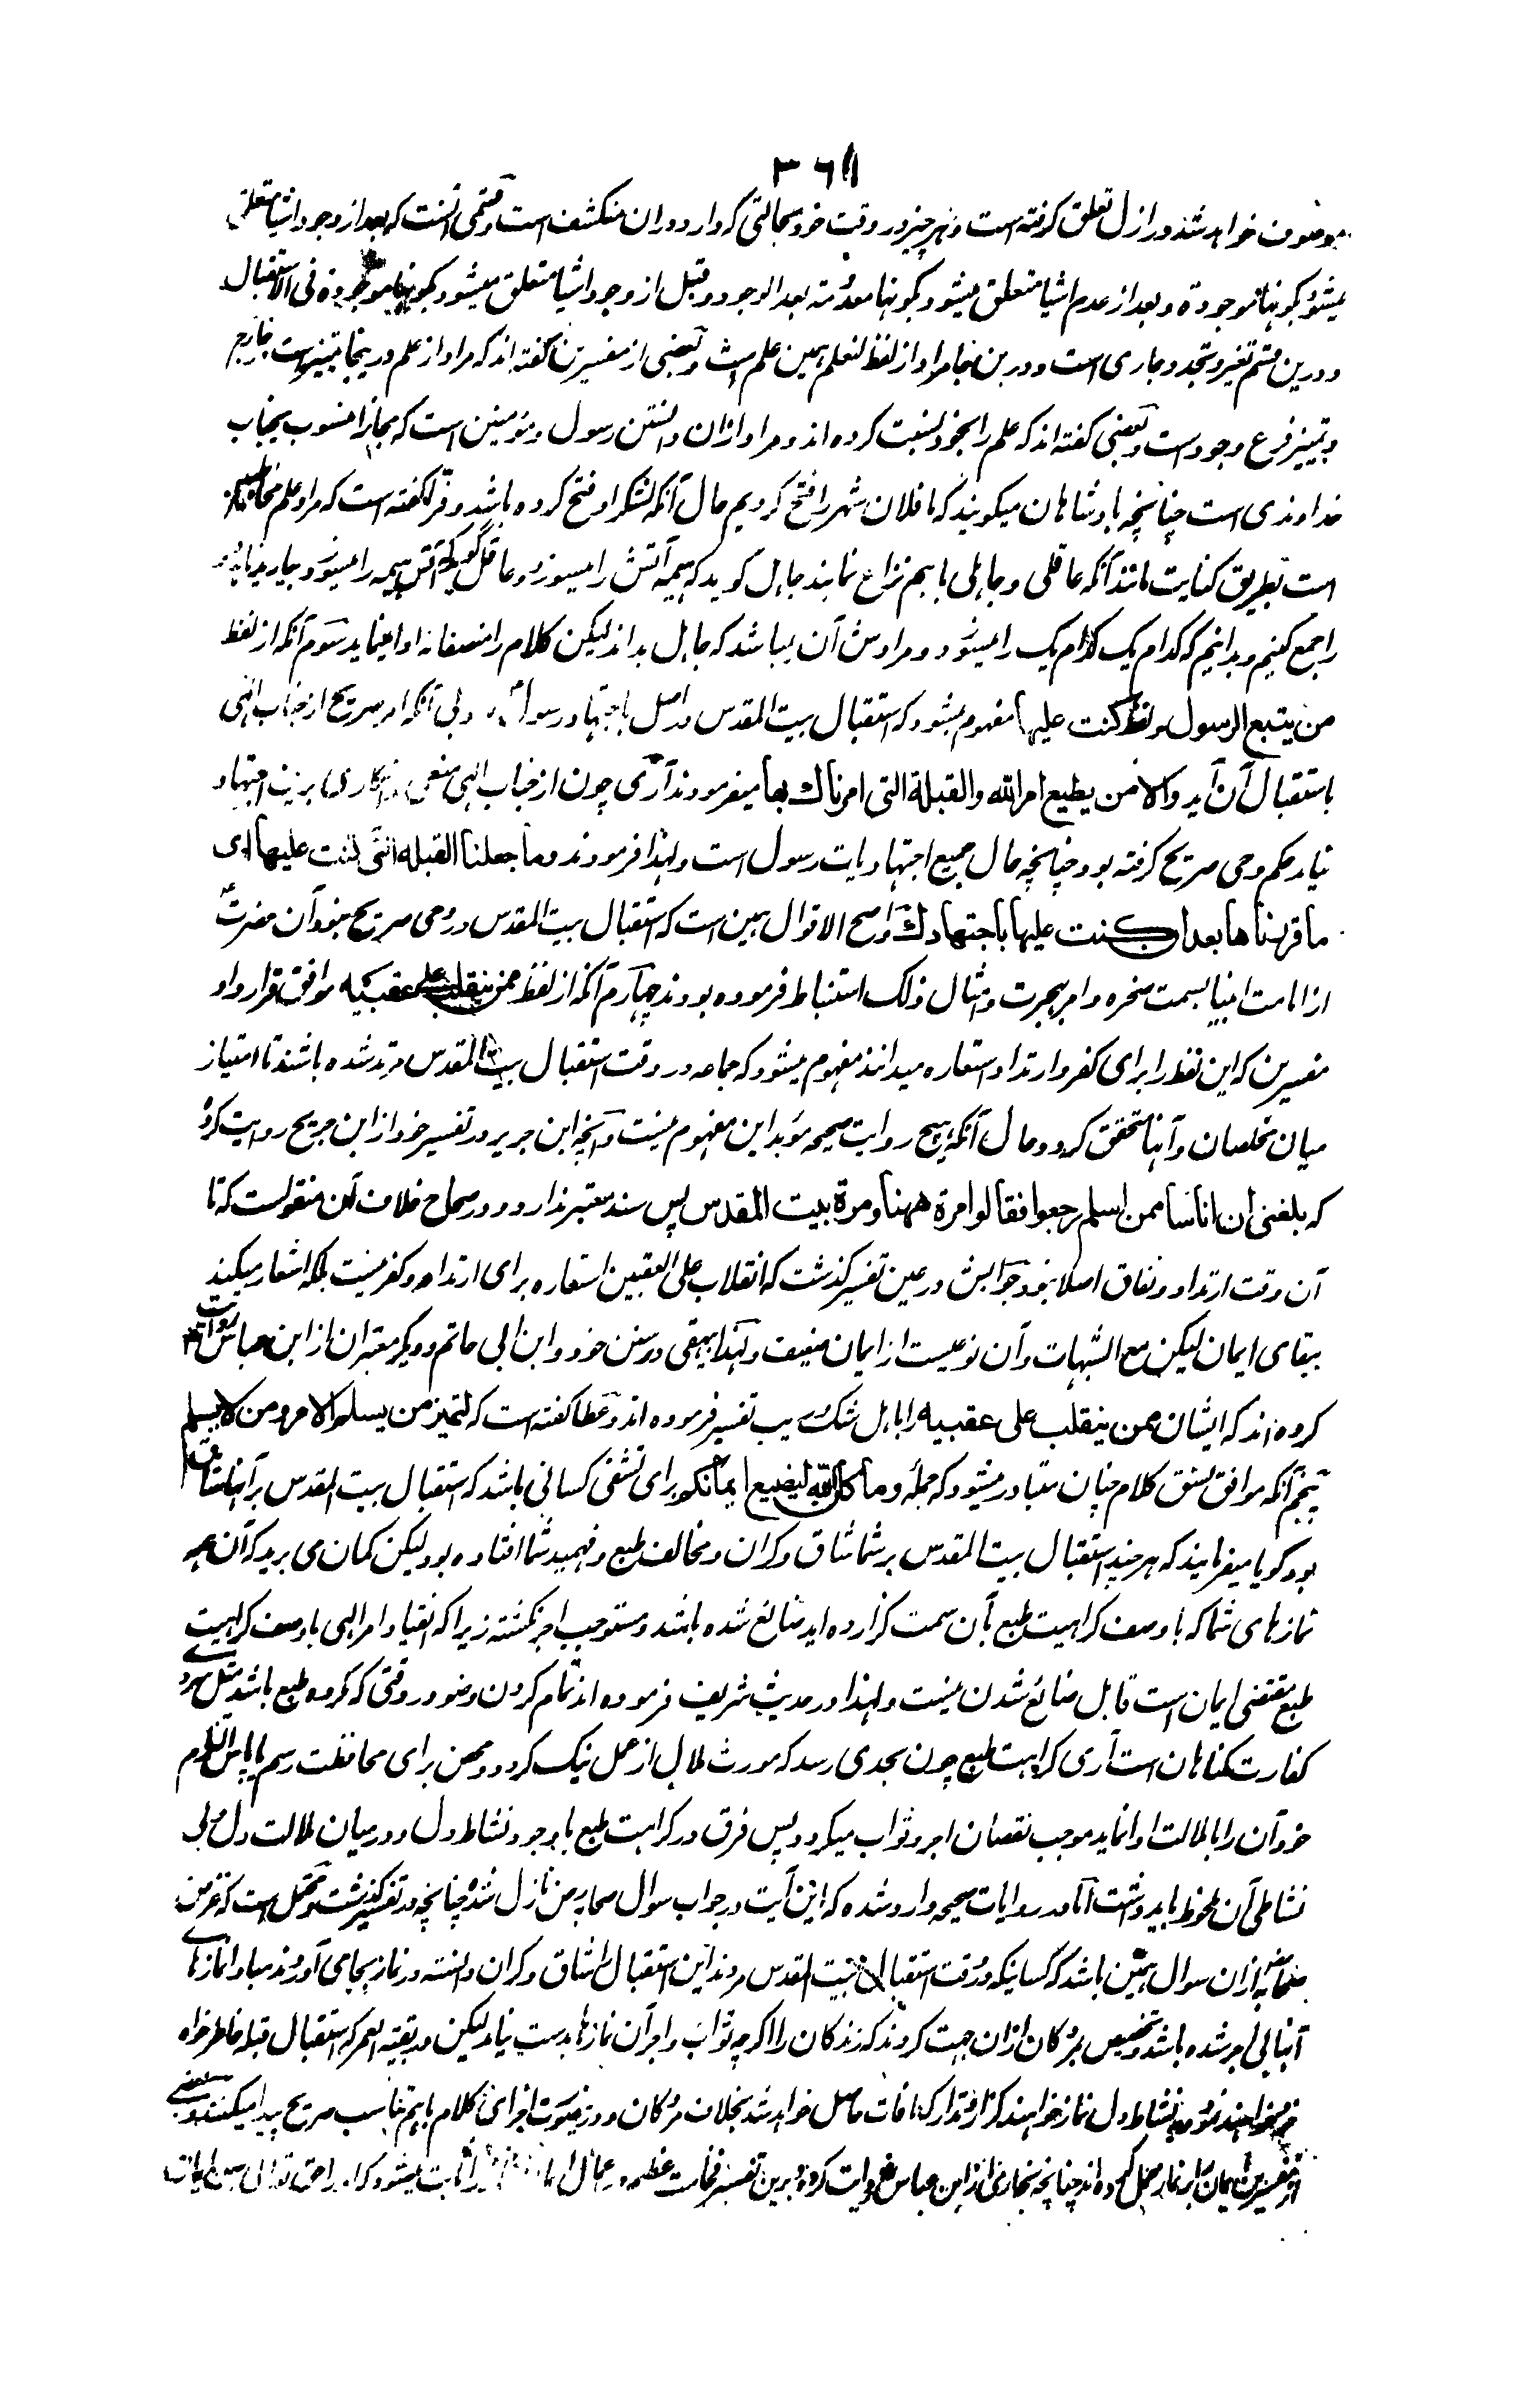 ٣٦٨
موصوف خواهد شد در ازل تعلق گرفته است و هر چیز در وقت خود بحالتی که دارد دران منکشف است و قسمی آنست که بعد از وجود اشیا متعلق
میشود بکونها موجودة و بعد از عدم اشیا متعلق میشود بکونها معدومة بعد الوجود و قبل از وجود اشیا متعلق میشود بکونها موجودة فی الاستقبال
و درین قسم تغیر و تجدد جاری است و درین جا مراد از لفظ لنعلم همین علم است و بعضی از مفسرین گفته اند که مراد از علم درینجا تمیز است خارج
و تمییز فرع وجود است و بعضی گفته اند که علم را بخود نسبت کرده اند و مراد ازان دانستن رسول و مؤمنین است که مجازا منسوب بجناب
خداوندی است چنانچه بادشاهان میگویند که ما فلان شهر را فتح کردیم حال آنکه لشکر او فتح کرده باشد و فرّا گفته است که مراد علم مخاطبین
است بطریق کنایت مانند آنکه عاقلی و جاهلی باهم نزاع نمایند جاهل گوید که هیمه آتش را میسوزد و عاقل گوید که آتش هیمه را میسوزد و بیارید تا هر دو
را جمع کنیم و بدانیم که کدام یک کدام یک را میسوزد و مرادش آن میباشد که جاهل بداند لیکن کلام را منصفانه ادا مینماید سوم آنکه از لفظ
من یتبع الرسول و لفظ کنت علیها مفهوم میشود که استقبال بیت المقدس در اصل باجتهاد رسول بود بی آنکه امر صریح از جناب الهی
باستقبال آن آید و الا من یطیع امر الله و القبلة التی امرناك بها میفرمودند آری چون از جناب الهی منعی و انکاری برین اجتهاد
نیامد حکم وحی صریح گرفته بود چنانچه حال جمیع اجتهادیات رسول است و لهذا فرمودند و ما جعلنا القبلة التی کنت علیها ای
ما قررناها بعد ان کنت علیها باجتهادك و اصح الاقوال همین است که استقبال بیت المقدس در وحی صریح نبود آن حضرتؐ
از امامت انبیا بسمت صخره و امر بهجرت و امثال ذلک استنباط فرموده بودند چهارم آنکه از لفظ ممن ینقلب علی عقبیه موافق قرارداد
مفسرین که این لفظ را برای کفر و ارتداد استعاره میدانند مفهوم میشود که جماعه در وقت استقبال بیت المقدس مرتد شده باشند تا امتیاز
میان مخلصان و آنها متحقق گردد و حال آنکه هیچ روایت صحیحه مؤید این مفهوم نیست و آنچه ابن جریر در تفسیر خود از ابن جریج روایت کرده
که بلغنی ان اناسا ممن اسلم رجعوا فقالوا مرة ههنا و مرة بیت المقدس پس سند معتبر ندارد و در صحاح خلاف آن منقولست که تا
آن وقت ارتداد و نفاق اصلا نبود جوابش در عین تفسیر گذشت که انقلاب علی العقبین استعاره برای ارتداد و کفر نیست بلکه اشعار میکند
ببقای ایمان لیکن مع الشبهات و آن نوعیست از ایمان ضعیف و لهذا بیهقی در سنن خود و ابن ابی حاتم و دیگر معتبران از ابن عباسؓ روایت
کرده اند که ایشان ممن ینقلب علی عقبیه را باهل شک و ریب تفسیر فرموده اند و عطا گفته است که لتمیز من یسلم الامر و من لا یسلم
پنجم آنکه موافق نسق کلام چنان متبادر میشود که جمله و ما کان الله لیضیع ایمانکم برای تشفی کسانی باشد که استقبال بیت المقدس بر آنها شاق
بود گویا میفرمایند که هر چند استقبال بیت المقدس بر شما شاق و گران و مخالف طبع و فهمید شما افتاده بود لیکن گمان می برید که آن همه
نمازهای شما که با وصف کراهیت طبع بآن سمت گزارده اید ضائع شده باشد و مستوجب اجر نگشته زیرا که انقیاد امر الهی با وصف کراهیت
طبع مقتضی ایمان است قابل ضائع شدن نیست و لهذا در حدیث شریف فرموده اند تمام کردن وضو در وقتی که مکروه طبع باشد مثل سردی
کفارت گناهان است آری کراهیت طبع چون بحدی رسد که مورث ملال از عمل نیک گردد و محض برای محافظت رسم یا پاس التزام
خود آن را بملالت ادا نماید موجب نقصان اجر و ثواب میگردد پس فرق در کراهیت طبع با وجود نشاط دل و در میان ملالت دل و بی
نشاطی آن ملحوظ باید داشت اما در روایات صحیحه وارد شده که این آیت در جواب سوال صحابه رض نازل شده چنانچه در تفسیر گذشت و محتمل است که غرض
صحابه ازان سوال همین باشد که کسانیکه در وقت استقبال بیت المقدس مردند این استقبال را شاق و گران دانسته در نماز بجا می آوردند مبادا نمازهای
آنها بی اجر شده باشد و تخصیص مردگان ازان جهت کردند که زندگان را اگرچه ثواب و اجر آن نمازها بدست نیامد لیکن در بقیة العمر که استقبال قبله خاطر خواه
خود خواهند نمود و به نشاط دل نماز خواهند گزارد تدارک مافات حاصل خواهد شد بخلاف مردگان و درینصورت اجزای کلام باهم تناسب صریح پیدا میکنند و بعضی
از مفسرین ایمان را بر نماز حمل کرده اند چنانچه بخاری از ابن عباسؓ روایت کرده و برین تفسیر فخامت عظمه در اعمال ثابت میشود که